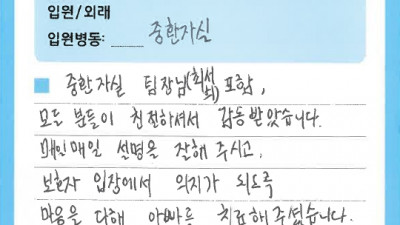 입원/외래
입원병동: 중환자실
중환자실 팀장님(최선희) 포함,
모든 분들이 친절하셔서 감동 받았습니다.
매일매일 설명을 잘해 주시고,
보호자 입장에서 의지가 되도록
마음을 다해 아빠를 치료해 주셨습니다.